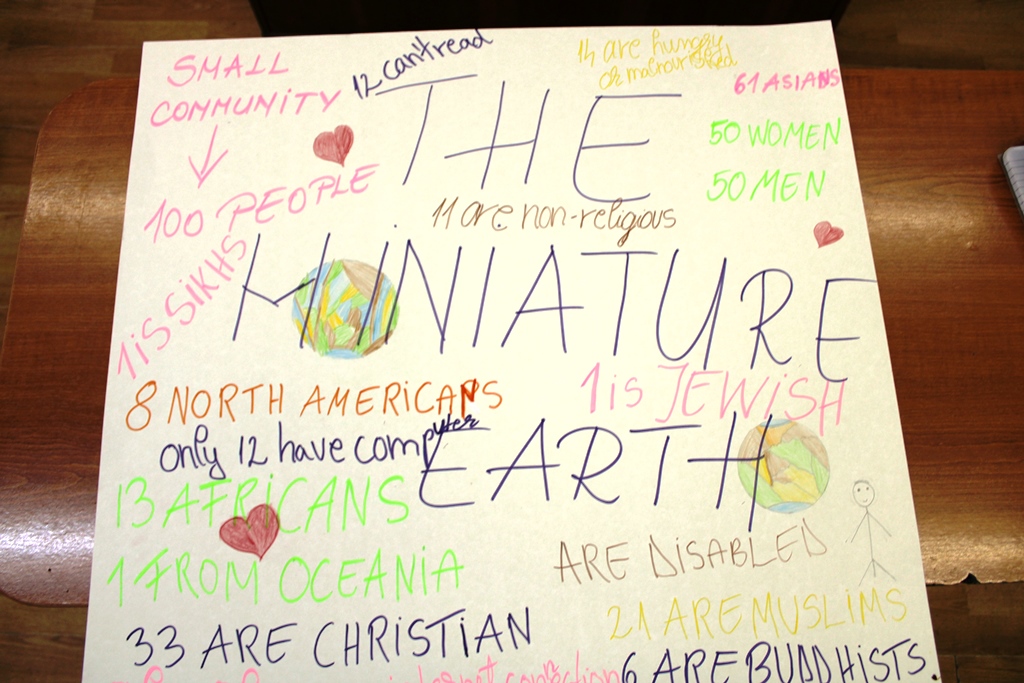 SMALL
COMMUNITY
100 PEOPLE
12 can't read
14 are hungry
or malnourished
61 ASIANS
50 WOMEN
50 MEN
THE
11 are non-religious
MINIATURE
1 is SIKHS
8 NORTH AMERICANS
1 is JEWISH
only 12 have computer
EARTH
13 AFRICANS
1 FROM OCEANIA
ARE DISABLED
21 ARE MUSLIMS
33 ARE CHRISTIAN
6 ARE BUDDHISTS.
connection